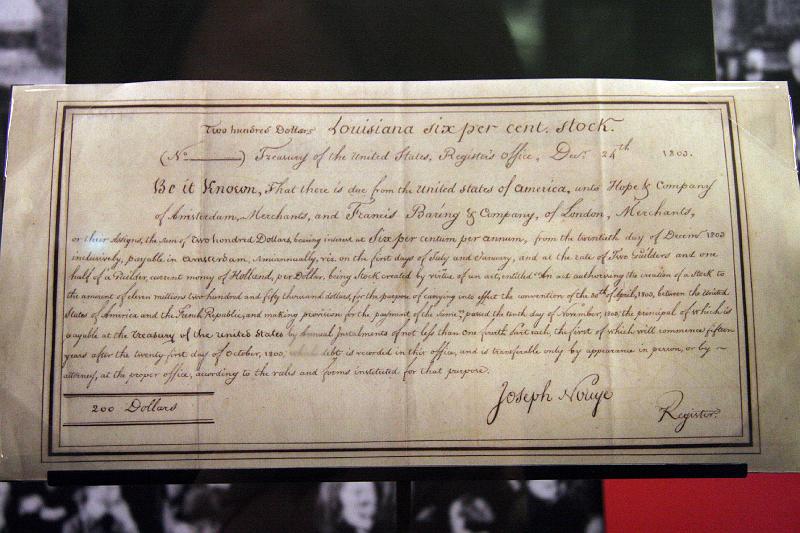 Two hundred Dollars Louisiana six per cent. Stock.
(No ) Treasury of the United States, Register's Office, Decr. 24th 1803.
Be it Known, That there is due from the United States of America, unto Hope & Company
of Amsterdam, Merchants, and Francis Baring & Company, of London, Merchants,
or their Assigns, the Sum of Two hundred Dollars, bearing interest at Six per centum per annum, from the twentieth day of Decemr. 1803
inclusively, payable in Amsterdam, Semiannually, viz. on the first days of July and January, and at the rate of Two Guilders and one
half of a Guilder, current money of Holland, per Dollar, being Stock created by virtue of an act, entitled "An act authorising the creation of a Stock to
the amount of eleven millions two hundred and fifty thousand dollars for the purpose of carrying into effect the convention of the 30th of April, 1803, between the United
States of America and the French Republic, and making provision for the payment of the Same," passed the tenth day of November, 1803, the principal of which is
payable at the Treasury of the United States by Annual Instalments of not less than one fourth part each, the first of which will commence fifteen
years after the twenty first day of October, 1803, which debt is recorded in this office, and is transferable only by appearance in person, or by
attorney, at the proper office, according to the rules and forms instituted for that purpose.
200 Dollars
Joseph Nourse
Register.